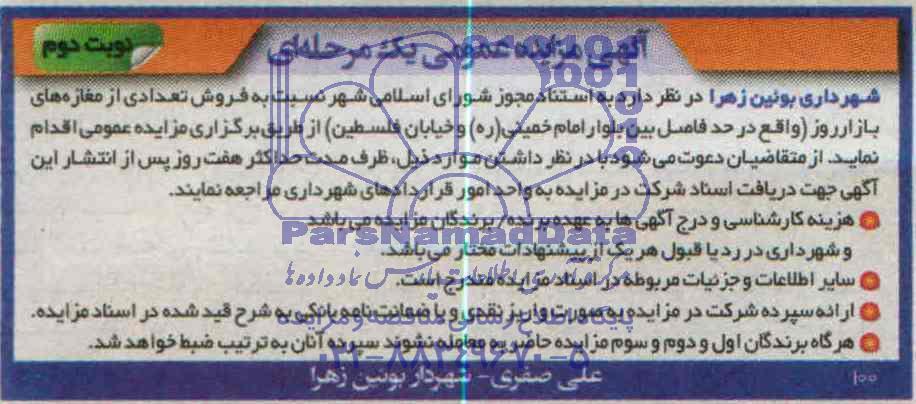 آگهی مزایده عمومی یک مرحله‌ای
نوبت دوم
شهرداری بوئین زهرا در نظر دارد به استناد مجوز شورای اسلامی شهر نسبت به فروش تعدادی از مغازه‌های
بازارروز (واقع در حد فاصل بین بلوار امام خمینی(ره) و خیابان فلسطین) از طریق برگزاری مزایده عمومی اقدام
نماید. از متقاضیان دعوت می شود با در نظر داشتن موارد ذیل، ظرف مدت حداکثر هفت روز پس از انتشار این
آگهی جهت دریافت اسناد شرکت در مزایده به واحد امور قراردادهای شهرداری مراجعه نمایند.
هزینه کارشناسی و درج آگهی ها به عهده برنده/ برندگان مزایده می باشد
و شهرداری در رد یا قبول هر یک از پیشنهادات مختار می‌باشد.
سایر اطلاعات و جزئیات مربوطه در اسناد مزایده مندرج است.
ارائه سپرده شرکت در مزایده به صورت واریز نقدی و یا ضمانت نامه بانکی به شرح قید شده در اسناد مزایده.
هر گاه برندگان اول و دوم و سوم مزایده حاضر به معامله نشوند سپرده آنان به ترتیب ضبط خواهد شد.
علی صفری- شهردار بوئین زهرا
۱۰۰
ParsNamadData
پایگاه اطلاع رسانی مناقصه و مزایده
۰۲۱-۸۸۳۴۹۶۷۰-۵